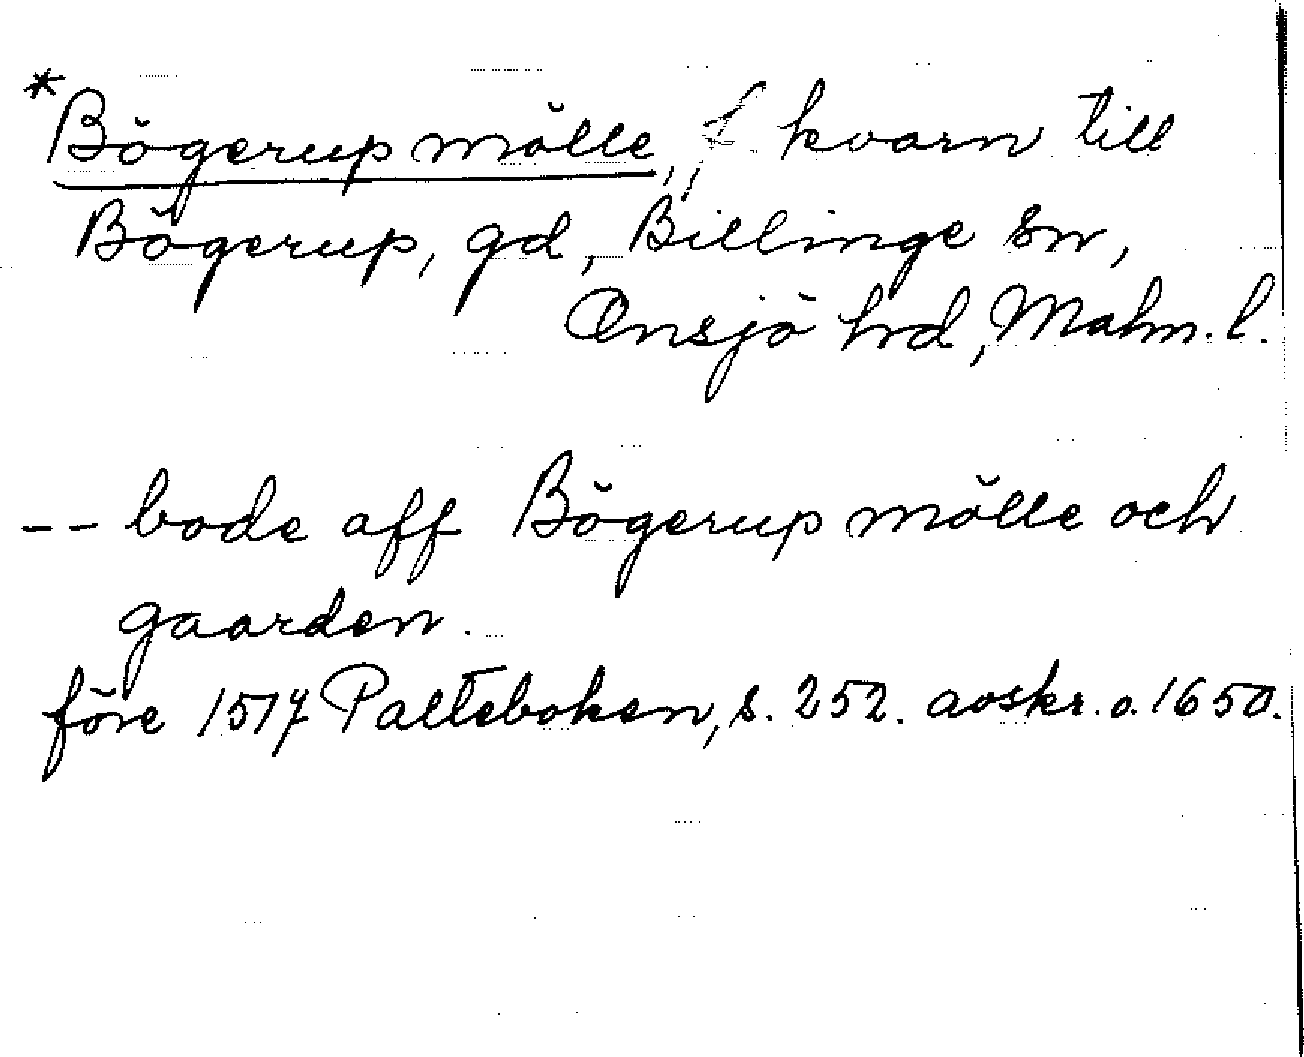 *Bögerup mölle, f kvarn till
Bögerup, gd, Billinge sn,
Onsjö hrd, Malm. l.
-- bode aff Bögerup mölle och
gaarden.
före 1517 Palteboken, s. 252. avskr. o. 1650.